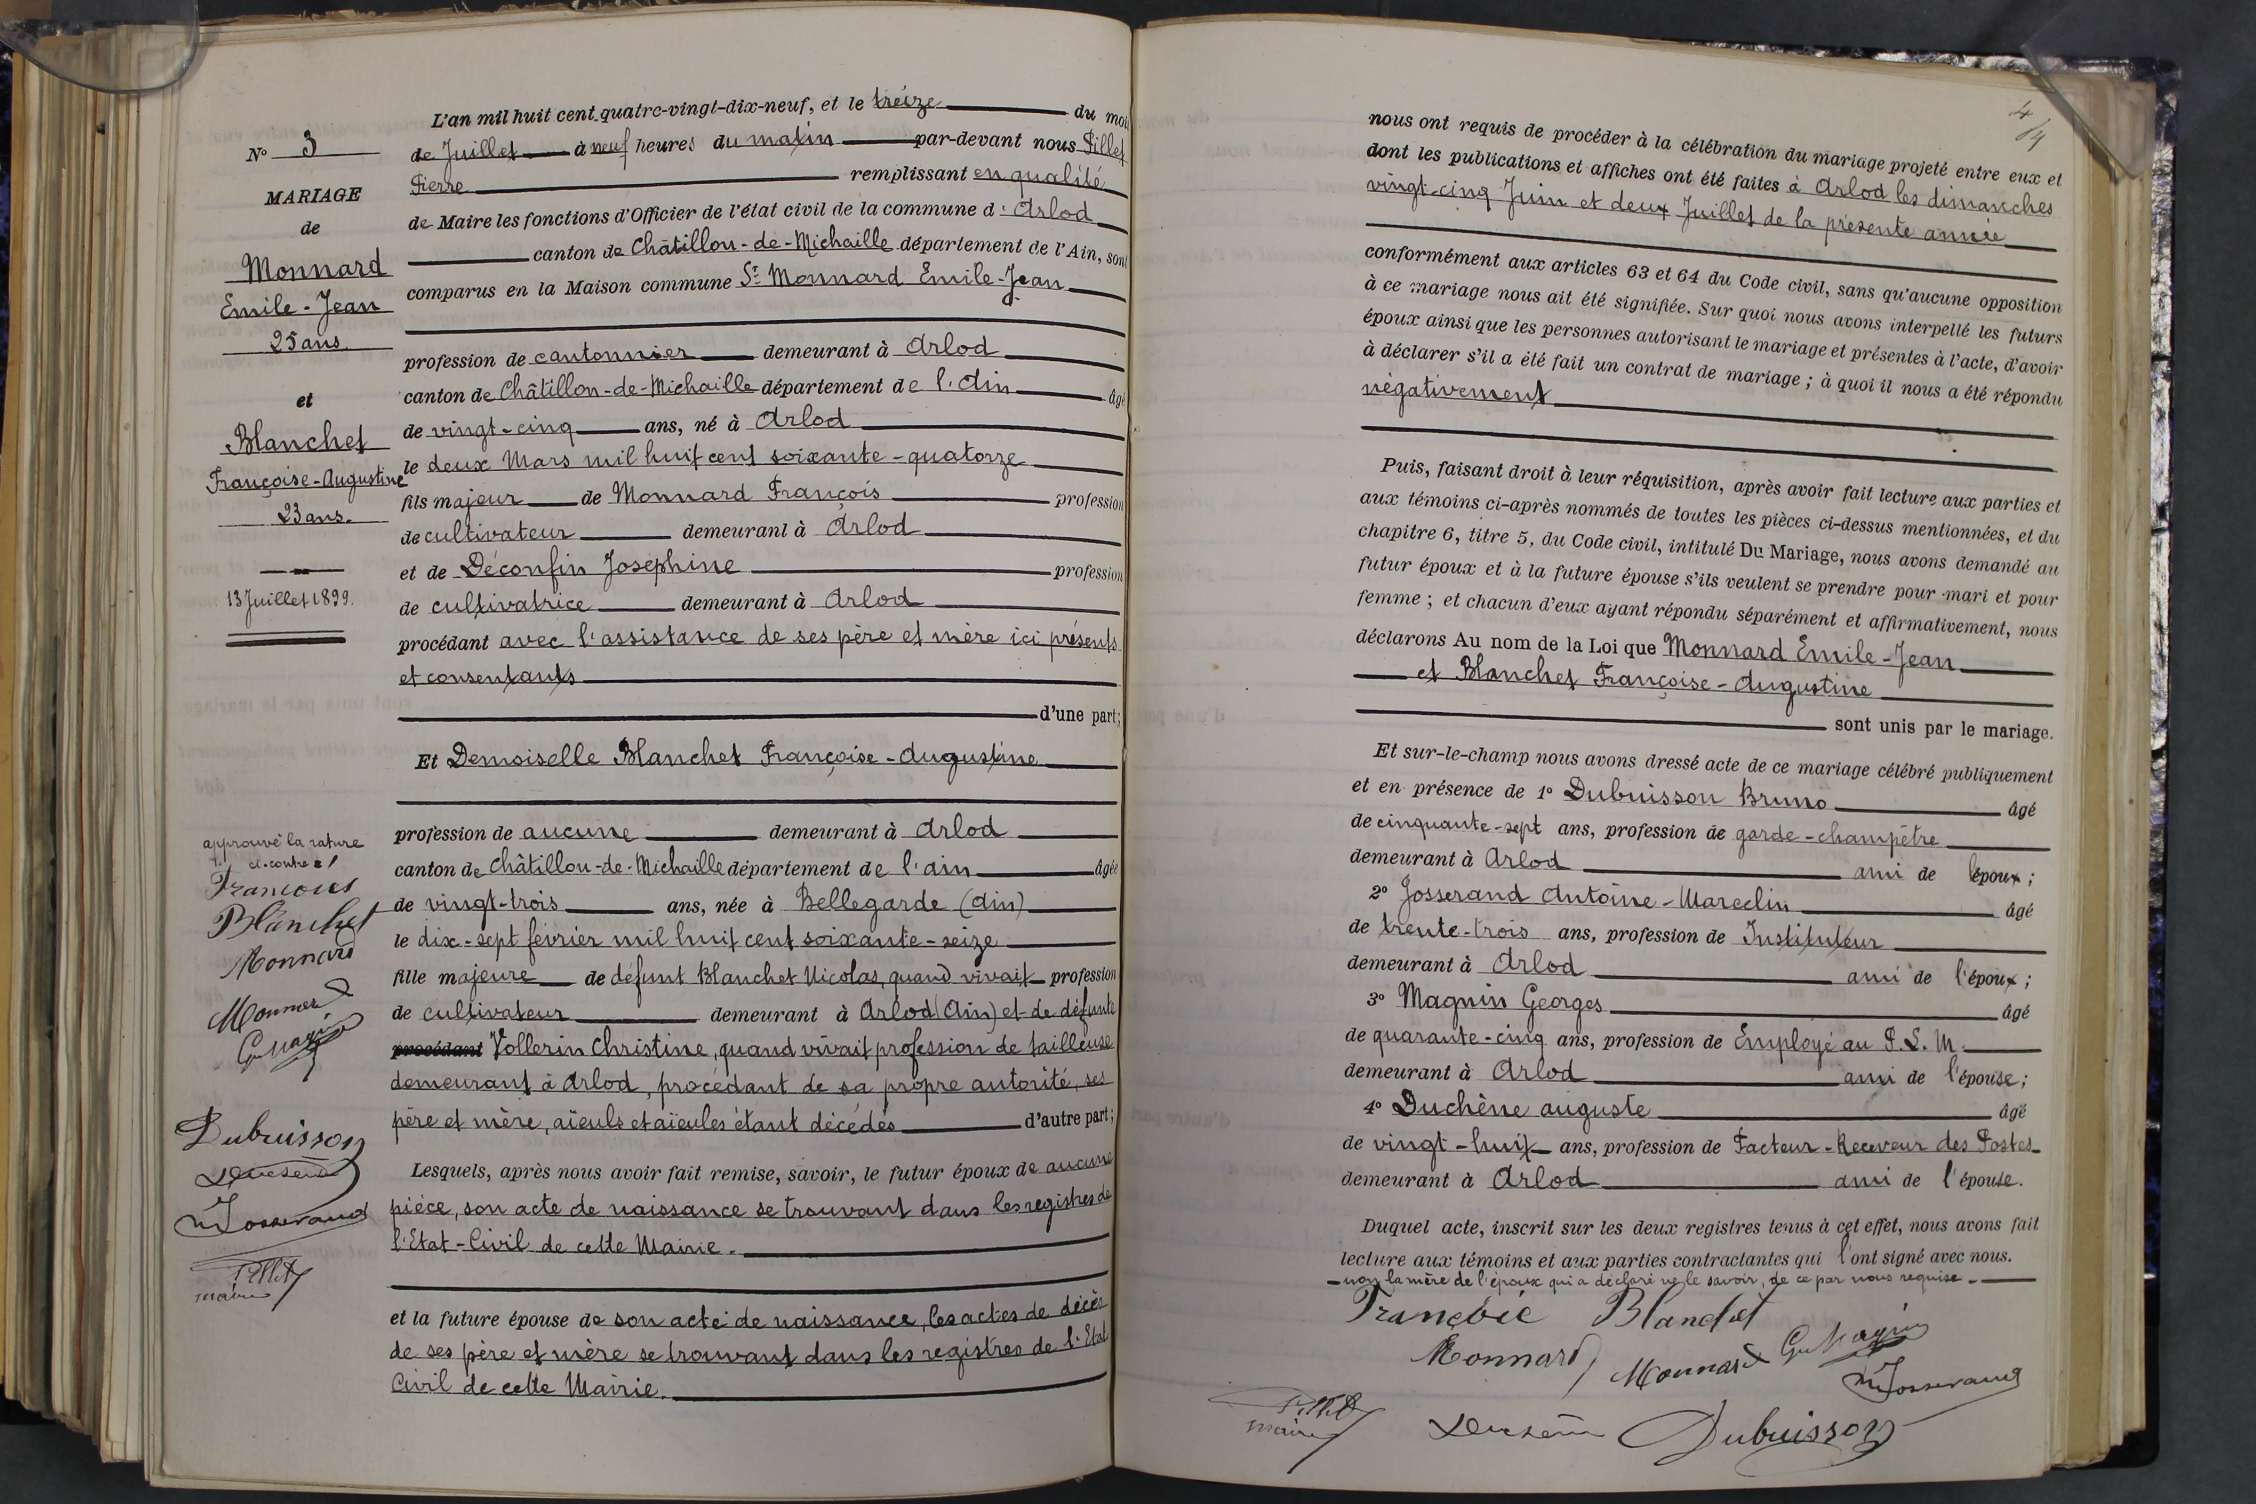 N° 3
MARIAGE
de
Monnard
Emile-Jean
25 ans.
et
Blanchet
Françoise-Augustine
23 ans.
13 Juillet 1899.
approuvé la rature
ci-contre
François
Blanchet
Monnard
Monnard
G. Magnin
Dubuisson
Duchêne
M Josserand
Pillet
maire
L'an mil huit cent quatre-vingt-dix-neuf, et le treize du moi
de Juillet à neuf heures du matin par-devant nous Pillet
Pierre remplissant en qualité
de Maire les fonctions d'Officier de l'état civil de la commune d'Arlod
canton de Châtillon-de-Michaille département de l'Ain, sont
comparus en la Maison commune Sr Monnard Emile-Jean
profession de cantonnier demeurant à Arlod
canton de Châtillon-de-Michaille département de l'Ain âgé
de vingt-cinq ans, né à Arlod
le deux Mars mil huit cent soixante-quatorze
fils majeur de Monnard François profession
de cultivateur demeurant à Arlod
et de Déconfin Joséphine profession
de cultivatrice demeurant à Arlod
procédant avec l'assistance de ses père et mère ici présents
et consentants
d'une part;
Et Demoiselle Blanchet Françoise-Augustine
profession de aucune demeurant à Arlod
canton de Châtillon-de-Michaille département de l'ain âgée
de vingt-trois ans, née à Bellegarde (Ain)
le dix-sept février mil huit cent soixante-seize
fille majeure de défunt Blanchet Nicolas, quand vivait profession
de cultivateur demeurant à Arlod (Ain) et de défunte
procédant Vollerin Christine, quand vivait profession de tailleuse
demeurant à Arlod, procédant de sa propre autorité, ses
père et mère, aïeuls et aïeules étant décédés d'autre part;
Lesquels, après nous avoir fait remise, savoir, le futur époux de aucune
pièce, son acte de naissance se trouvant dans les registres de
l'Etat-Civil de cette Mairie.
et la future épouse de son acte de naissance, les actes de décès
de ses père et mère se trouvant dans les registres de l'Etat
Civil de cette Mairie.
4
nous ont requis de procéder à la célébration du mariage projeté entre eux et
dont les publications et affiches ont été faites à Arlod les dimanches
vingt-cinq Juin et deux Juillet de la présente année
conformément aux articles 63 et 64 du Code civil, sans qu'aucune opposition
à ce mariage nous ait été signifiée. Sur quoi nous avons interpellé les futurs
époux ainsi que les personnes autorisant le mariage et présentes à l'acte, d'avoir
à déclarer s'il a été fait un contrat de mariage; à quoi il nous a été répondu
négativement
Puis, faisant droit à leur réquisition, après avoir fait lecture aux parties et
aux témoins ci-après nommés de toutes les pièces ci-dessus mentionnées, et du
chapitre 6, titre 5, du Code civil, intitulé Du Mariage, nous avons demandé au
futur époux et à la future épouse s'ils veulent se prendre pour mari et pour
femme; et chacun d'eux ayant répondu séparément et affirmativement, nous
déclarons Au nom de la Loi que Monnard Emile-Jean
et Blanchet Françoise-Augustine
sont unis par le mariage.
Et sur-le-champ nous avons dressé acte de ce mariage célébré publiquement
et en présence de 1° Dubuisson Bruno âgé
de cinquante-sept ans, profession de garde-champêtre
demeurant à Arlod ami de l'époux;
2° Josserand Antoine-Marcelin âgé
de trente-trois ans, profession de Instituteur
demeurant à Arlod ami de l'époux;
3° Magnin Georges âgé
de quarante-cinq ans, profession de Employé au P.L.M.
demeurant à Arlod ami de l'épouse;
4° Duchêne auguste âgé
de vingt-huit ans, profession de Facteur-Receveur des Postes
demeurant à Arlod ami de l'épouse.
Duquel acte, inscrit sur les deux registres tenus à cet effet, nous avons fait
lecture aux témoins et aux parties contractantes qui l'ont signé avec nous.
-non la mère de l'époux qui a déclaré ne le savoir, de ce par nous requise.-
Françoise Blanchet
Monnard Monnard G. Magnin
M Josserand
Pillet
maire
Duchêne Dubuisson